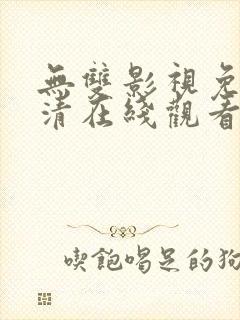 無雙影視免
清在綫觀看
喫飽喝足的狗